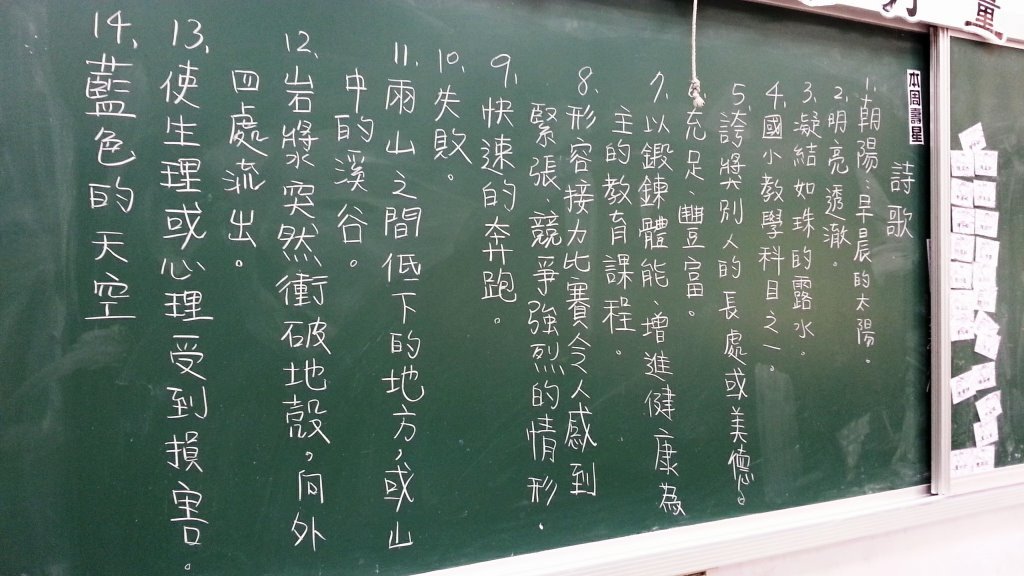 量
本周壽星
詩歌
1.朝陽:早晨的太陽。
2.明亮透澈。
3.凝結如珠的露水。
4.國小教學科目之一。
5.誇獎別人的長處或美德。
6.充足、豐富。
7.以鍛鍊體能、增進健康為
主的教育課程。
8.形容接力比賽令人感到
緊張、競爭強烈的情形。
9.快速的奔跑。
10.失敗。
11.兩山之間低下的地方,或山
中的溪谷。
12.岩漿突然衝破地殼,向外
四處流出。
13.使生理或心理受到損害。
14.藍色的天空